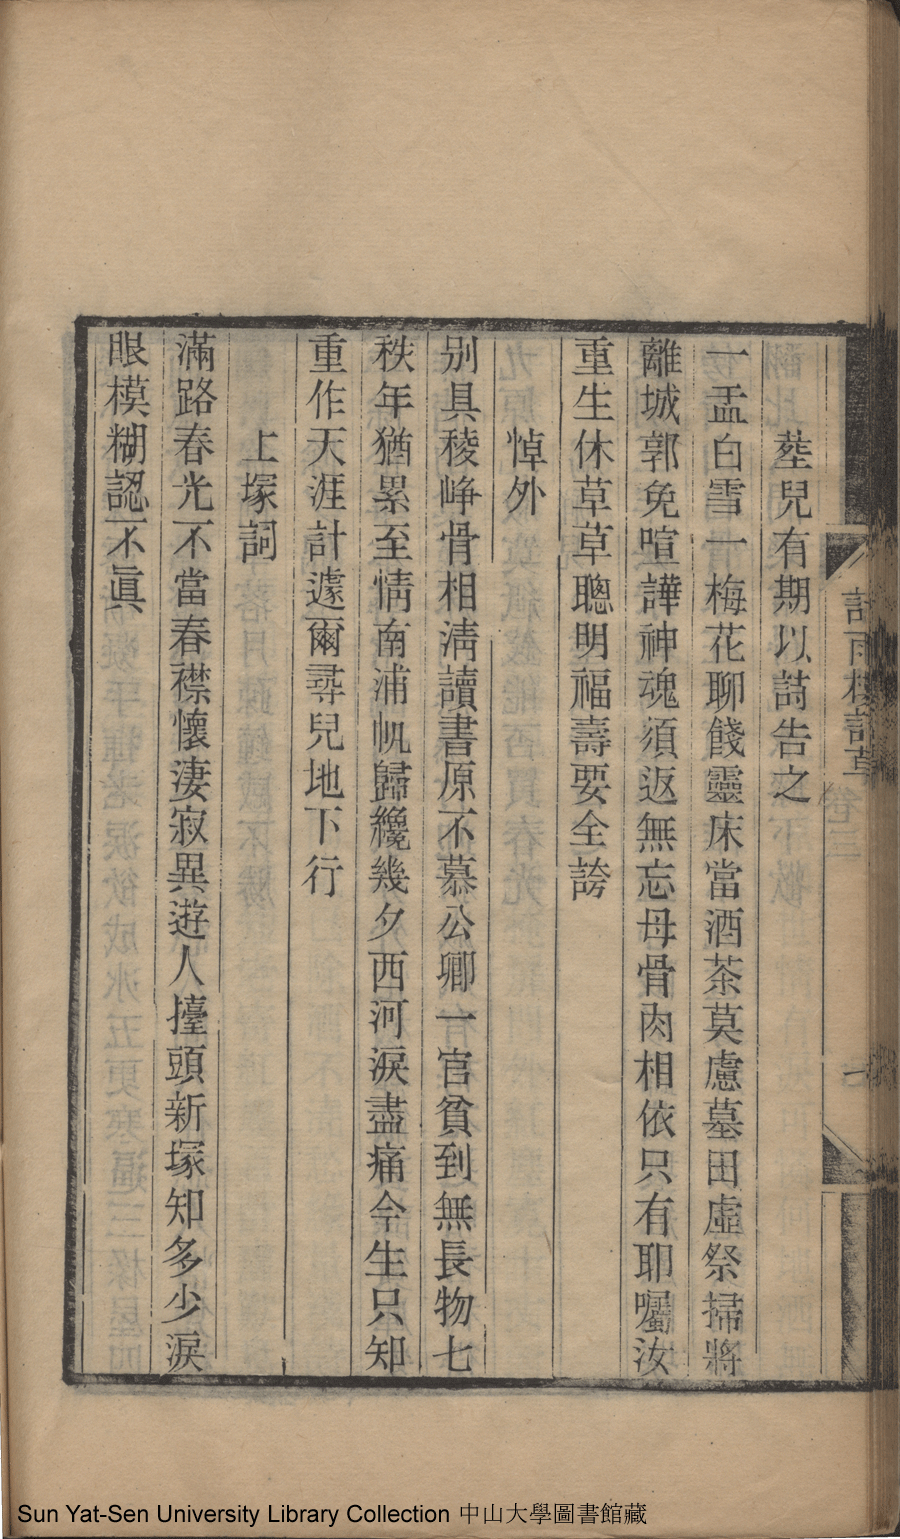 塟兒有期以詩告之
一盂白雪一梅花聊餞靈床當酒茶莫慮墓田虛祭掃將
離城郭免喧譁神魂須返無忘母骨肉相依只有耶囑汝
重生休草草聰明福壽要全誇
悼外
別具稜崢骨相清讀書原不慕公卿一官貧到無長物七
秩年猶累至情南浦帆歸纔幾夕西河淚盡痛今生只知
重作天涯計遽爾尋兒地下行
上塚詞
滿路春光不當春襟懷淒寂異遊人擡頭新塚知多少淚
眼模糊認不眞
卷三
Sun Yat-Sen University Library Collection 中山大學圖書館藏